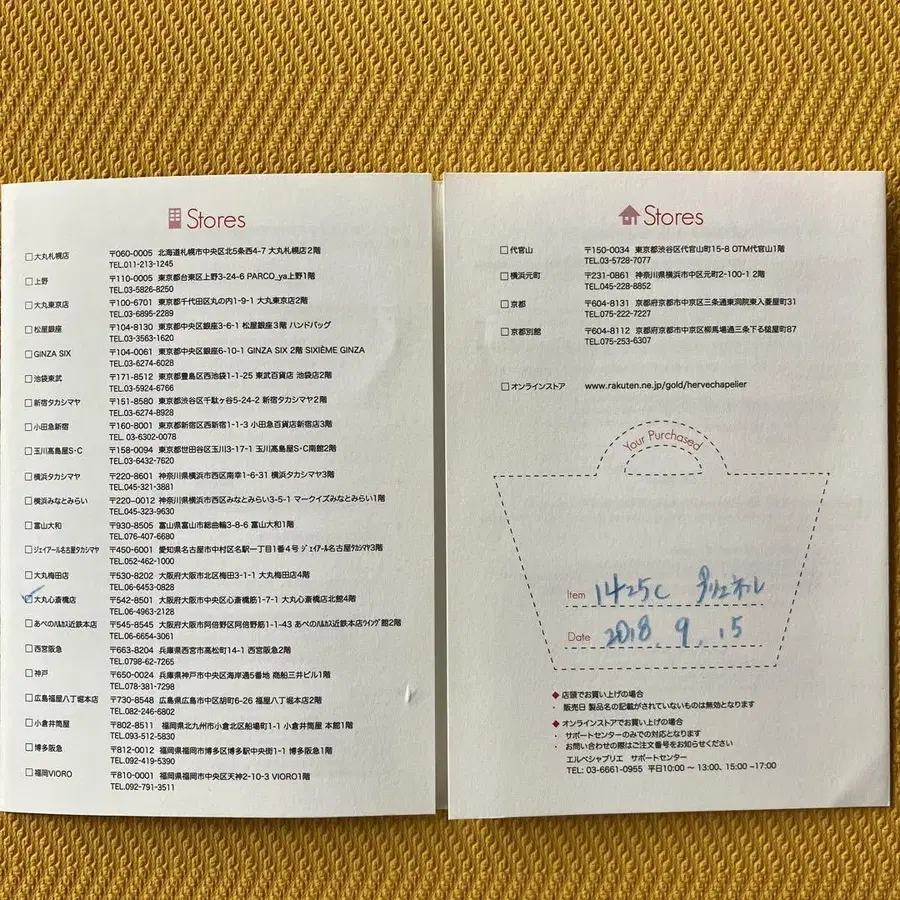 Stores
大丸札幌店 〒060-0005 北海道札幌市中央区北5条西4-7 大丸札幌店2階
TEL.011-213-1245
上野 〒110-0005 東京都台東区上野3-24-6 PARCO_ya上野1階
TEL.03-5826-8250
大丸東京店 〒100-6701 東京都千代田区丸の内1-9-1 大丸東京店2階
TEL.03-6895-2289
松屋銀座 〒104-8130 東京都中央区銀座3-6-1 松屋銀座3階 ハンドバッグ
TEL.03-3563-1620
GINZA SIX 〒104-0061 東京都中央区銀座6-10-1 GINZA SIX 2階 SIXIÈME GINZA
TEL.03-6274-6028
池袋東武 〒171-8512 東京都豊島区西池袋1-1-25 東武百貨店 池袋店2階
TEL.03-5924-6766
新宿タカシマヤ 〒151-8580 東京都渋谷区千駄ヶ谷5-24-2 新宿タカシマヤ2階
TEL.03-6274-8928
小田急新宿 〒160-8001 東京都新宿区西新宿1-1-3 小田急百貨店新宿店3階
TEL. 03-6302-0078
玉川髙島屋S・C 〒158-0094 東京都世田谷区玉川3-17-1 玉川髙島屋S・C南館2階
TEL.03-6432-7620
横浜タカシマヤ 〒220-8601 神奈川県横浜市西区南幸1-6-31 横浜タカシマヤ3階
TEL.045-321-3881
横浜みなとみらい 〒220-0012 神奈川県横浜市西区みなとみらい3-5-1 マークイズみなとみらい1階
TEL.045-323-9630
富山大和 〒930-8505 富山県富山市総曲輪3-8-6 富山大和1階
TEL.076-407-6680
ジェイアール名古屋タカシマヤ 〒450-6001 愛知県名古屋市中村区名駅一丁目1番4号 ジェイアール名古屋タカシマヤ3階
TEL.052-462-1000
大丸梅田店 〒530-8202 大阪府大阪市北区梅田3-1-1 大丸梅田店4階
TEL.06-6453-0828
大丸心斎橋店 〒542-8501 大阪府大阪市中央区心斎橋筋1-7-1 大丸心斎橋店北館4階
TEL.06-4963-2128
あべのハルカス近鉄本店 〒545-8545 大阪府大阪市阿倍野区阿倍野筋1-1-43 あべのハルカス近鉄本店ウイング館2階
TEL.06-6654-3061
西宮阪急 〒663-8204 兵庫県西宮市高松町14-1 西宮阪急2階
TEL.0798-62-7265
神戸 〒650-0024 兵庫県神戸市中央区海岸通5番地 商船三井ビル1階
TEL.078-381-7298
広島福屋八丁堀本店 〒730-8548 広島県広島市中区胡町6-26 福屋八丁堀本店2階
TEL.082-246-6802
小倉井筒屋 〒802-8511 福岡県北九州市小倉北区船場町1-1 小倉井筒屋 本館1階
TEL.093-512-5830
博多阪急 〒812-0012 福岡県福岡市博多区博多駅中央街1-1 博多阪急1階
TEL.092-419-5390
福岡VIORO 〒810-0001 福岡県福岡市中央区天神2-10-3 VIORO1階
TEL.092-791-3511
Stores
代官山 〒150-0034 東京都渋谷区代官山町15-8 OTM代官山1階
TEL.03-5728-7077
横浜元町 〒231-0861 神奈川県横浜市中区元町2-100-1 2階
TEL.045-228-8852
京都 〒604-8131 京都府京都市中京区三条通東洞院東入菱屋町31
TEL.075-222-7227
京都別館 〒604-8112 京都府京都市中京区柳馬場通三条下る槌屋町87
TEL.075-253-6307
オンラインストア www.rakuten.ne.jp/gold/hervechapelier
Your Purchased
Item 1425C クリュネール
Date 2018. 9. 15
◆店頭でお買い上げの場合
・ 販売日 製品名の記載がされていないものは無効となります
◆オンラインストアでお買い上げの場合
・ サポートセンターのみでの対応となります
・ お問い合わせの際はご注文番号をお知らせください
エルベシャプリエ サポートセンター
TEL: 03-6661-0955 平日10:00 ～ 13:00、15:00 ~17:00